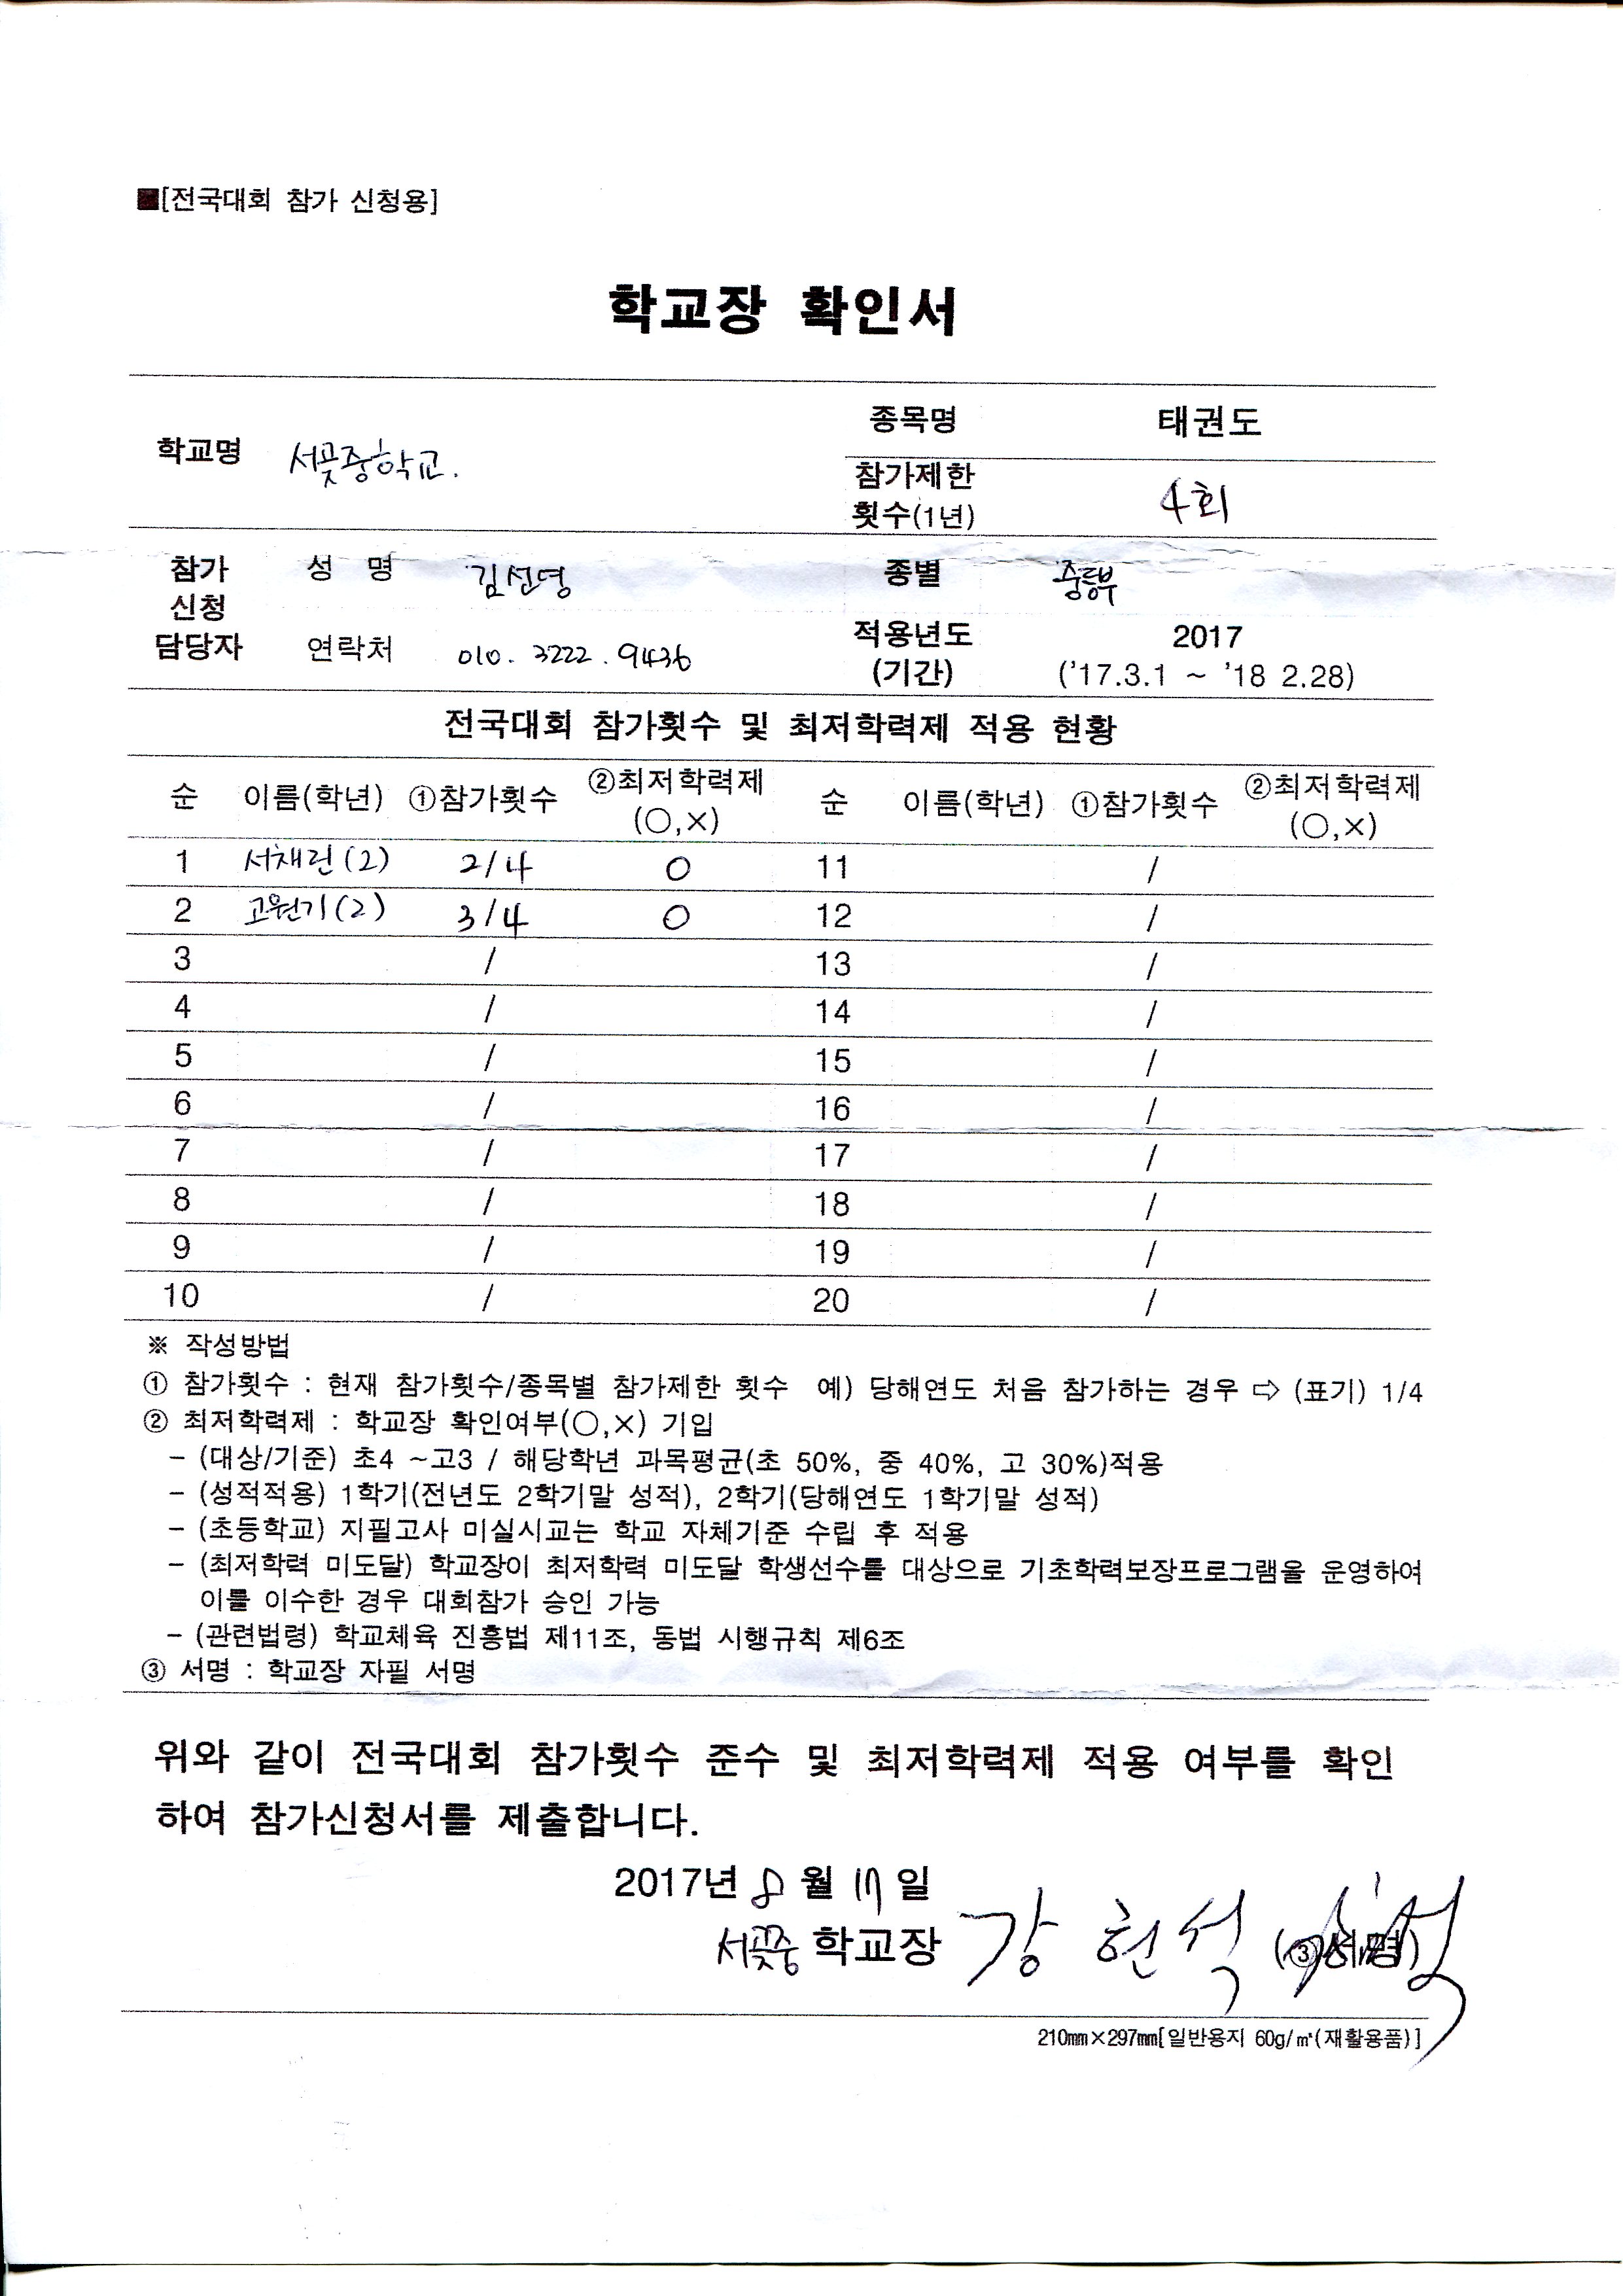 ■[전국대회 참가 신청용]
학교장 확인서
학교명 서곶중학교.
종목명 태권도
참가제한 횟수(1년) 4회
참가 신청 담당자
성 명 김선영
종별 중등부
연락처 010. 3222. 9436
적용년도 (기간) 2017 ('17.3.1 ~ '18 2.28)
전국대회 참가횟수 및 최저학력제 적용 현황
순 이름(학년) ①참가횟수 ②최저학력제 (○,×) 순 이름(학년) ①참가횟수 ②최저학력제 (○,×)
1 서채린(2) 2/4 O 11 /
2 고원기(2) 3/4 O 12 /
3 / 13 /
4 / 14 /
5 / 15 /
6 / 16 /
7 / 17 /
8 / 18 /
9 / 19 /
10 / 20 /
※ 작성방법
① 참가횟수 : 현재 참가횟수/종목별 참가제한 횟수 예) 당해연도 처음 참가하는 경우 ⇨ (표기) 1/4
② 최저학력제 : 학교장 확인여부(○,×) 기입
- (대상/기준) 초4 ~고3 / 해당학년 과목평균(초 50%, 중 40%, 고 30%)적용
- (성적적용) 1학기(전년도 2학기말 성적), 2학기(당해연도 1학기말 성적)
- (초등학교) 지필고사 미실시교는 학교 자체기준 수립 후 적용
- (최저학력 미도달) 학교장이 최저학력 미도달 학생선수를 대상으로 기초학력보장프로그램을 운영하여
이를 이수한 경우 대회참가 승인 가능
- (관련법령) 학교체육 진흥법 제11조, 동법 시행규칙 제6조
③ 서명 : 학교장 자필 서명
위와 같이 전국대회 참가횟수 준수 및 최저학력제 적용 여부를 확인
하여 참가신청서를 제출합니다.
2017년 8월 17일
서곶중 학교장 강현석 (③서명)
210㎜×297㎜[일반용지 60g/㎡(재활용품)]